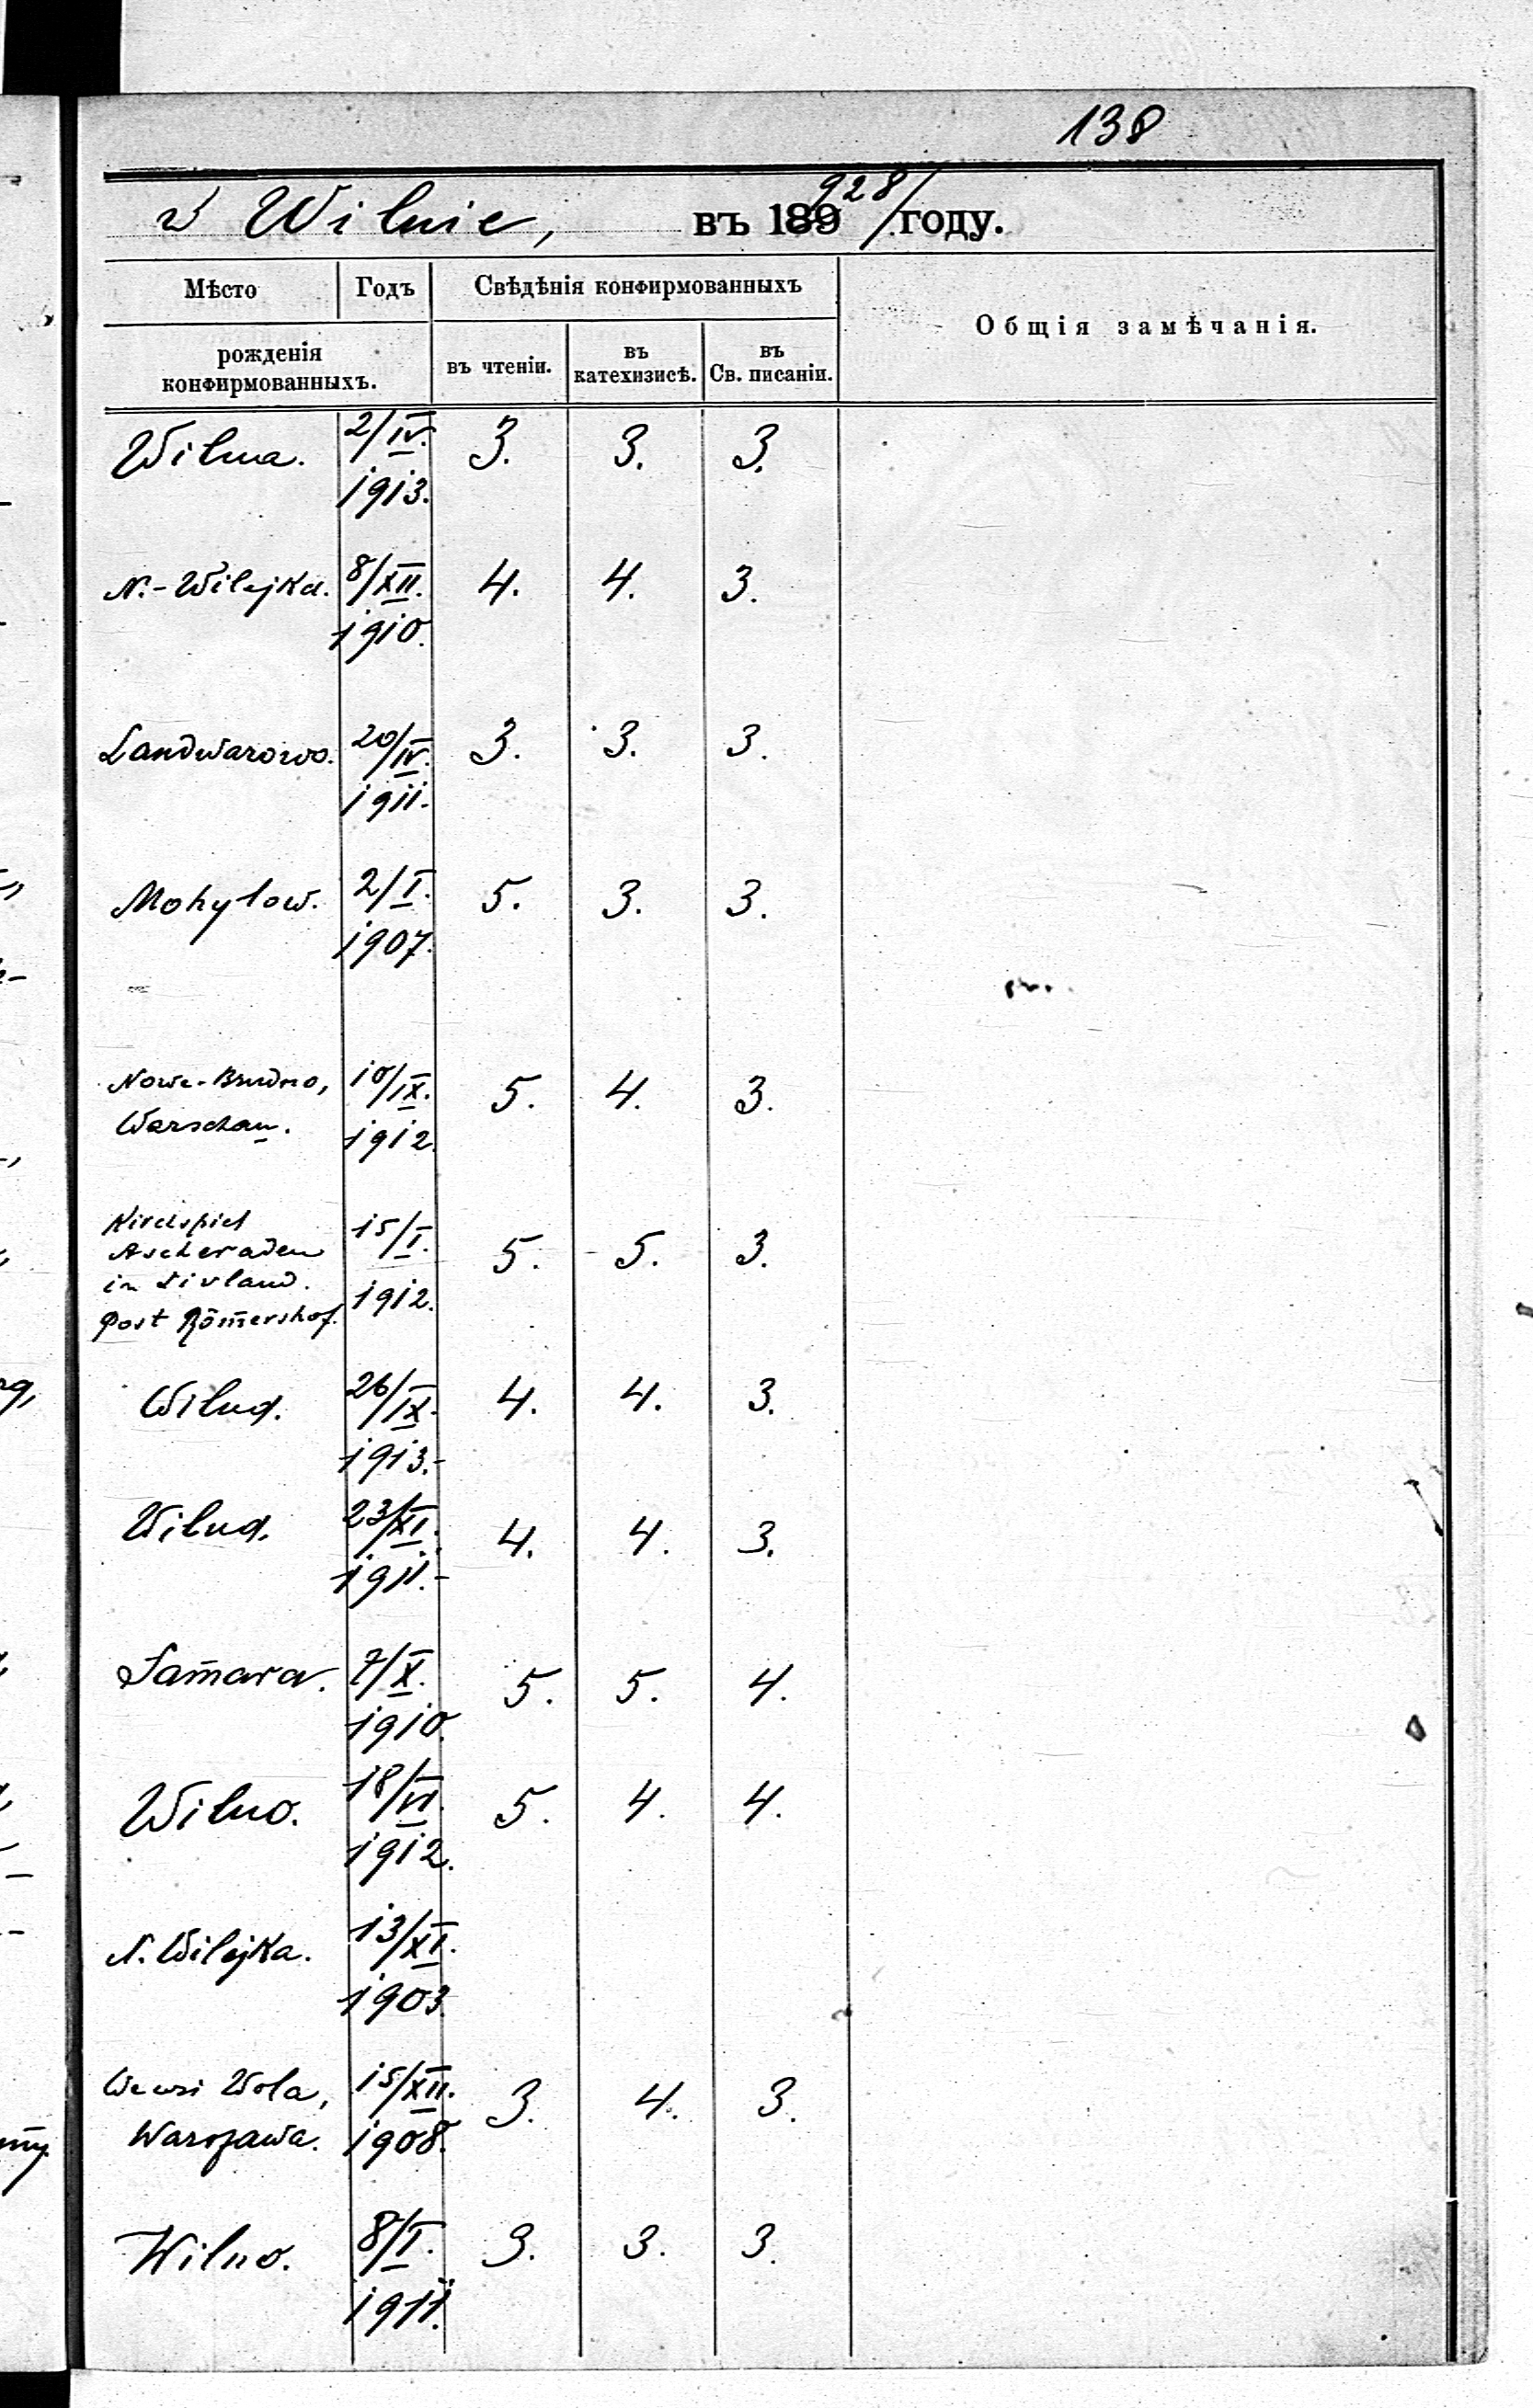 138
w Wilnie, въ 189 928/ году.
Мѣсто Годъ Свѣдѣнія конфирмованныхъ Общія замѣчанія.
рожденія конфирмованныхъ. въ чтеніи. въ катехизисѣ. въ Св. писаніи.
Wilna. 2/IV. 3. 3. 3.
1913.
N.-Wilejka. 8/XII. 4. 4. 3.
1910.
Landwarowo. 20/IV. 3. 3. 3.
1911.
Mohylow. 2/I. 5. 3. 3.
1907.
Nowe-Brudno, 10/IX. 5. 4. 3.
Warschau. 1912.
Kirchspiel 15/I.
Ascheraden 5. 5. 3.
in Livland.
Post Römershof. 1912.
Wilna. 26/IX. 4. 4. 3.
1913.-
Wilna. 23/XI. 4. 4. 3.
1911.-
Samara. 7/X. 5. 5. 4.
1910.
Wilno. 18/VI. 5. 4. 4.
1912.
N. Wilejka. 13/XI.
1903.
Wola, 15/XII. 3. 4. 3.
Warszawa. 1908.
Wilno. 8/I. 3. 3. 3.
1911.